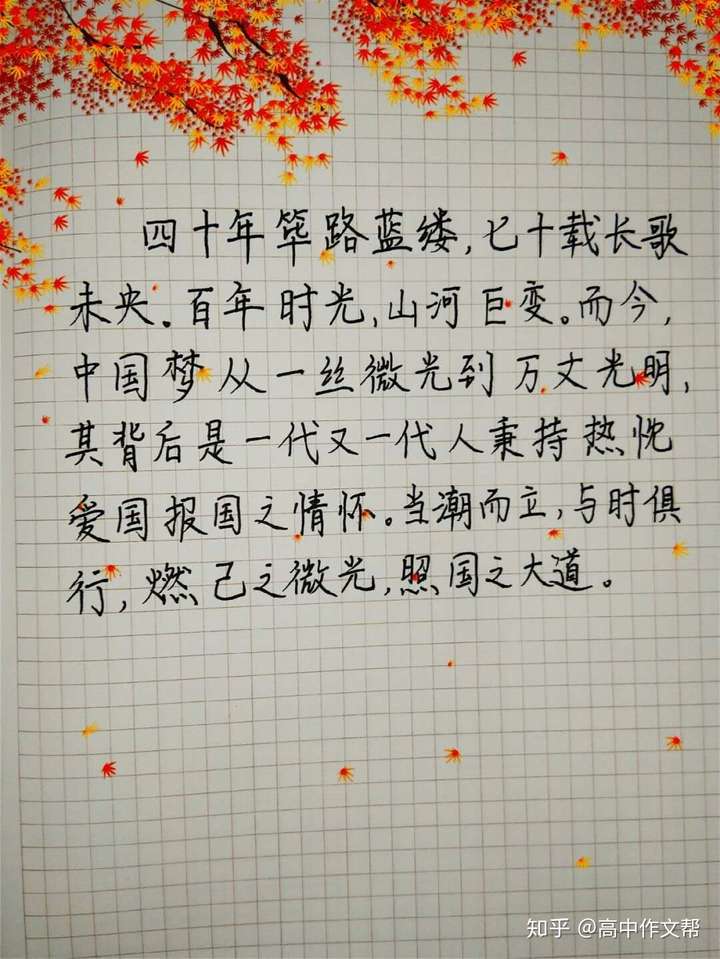 四十年筚路蓝缕,七十载长歌
未央。百年时光,山河巨变。而今,
中国梦从一丝微光到万丈光明,
其背后是一代又一代人秉持热忱
爱国报国之情怀。当潮而立,与时俱
行,燃己之微光,照国之大道。
知乎 @高中作文帮